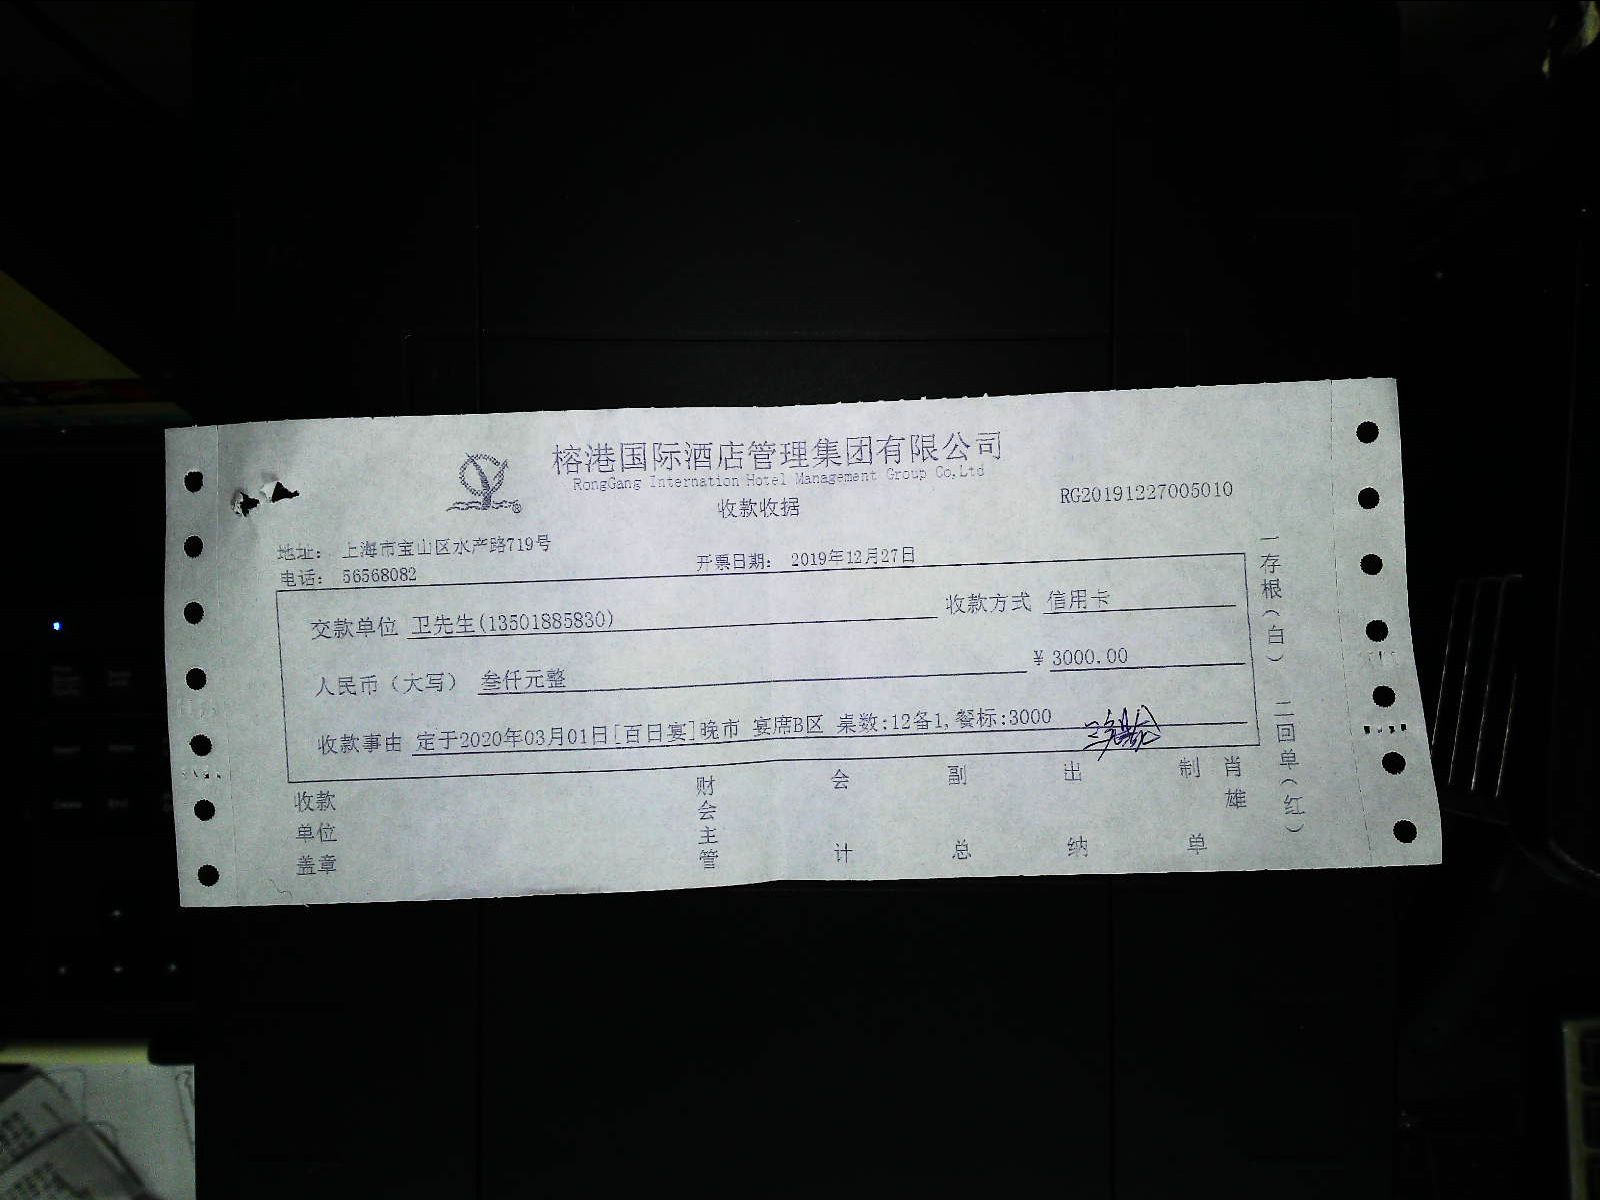 榕港国际酒店管理集团有限公司
RongGang Internation Hotel Management Group Co,Ltd
收款收据
RG20191227005010
地址： 上海市宝山区水产路719号
电话： 56568082
开票日期： 2019年12月27日
交款单位 卫先生(13501885830) 收款方式 信用卡
人民币（大写） 叁仟元整 ￥3000.00
收款事由 定于2020年03月01日[百日宴]晚市 宴席B区 桌数:12备1,餐标:3000
收款单位盖章 财会主管 会计 副总 出纳 制单 肖雄
一存根（白） 二回单（红）